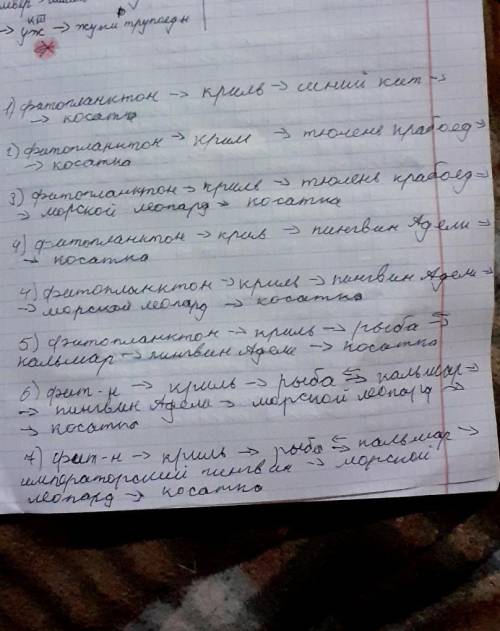 → уж → жуки трупоеды
1) фитопланктон → криль → синий кит →
→ косатка
2) фитопланктон → крил → тюлень крабоед →
→ косатка
3) фитопланктон → криль → тюлень крабоед →
→ морской леопард → косатка
4) фитопланктон → крив → пингвин Адели →
→ косатка
4) фитопланктон → криль → пингвин Адели →
→ морской леопард → косатка
5) фитопланктон → криль → рыба ⇆
кальмар → пингвин Адели → косатка
6) фит-н → криль → рыба ⇆ кальмар →
→ пингвин Адели → морской леопард →
→ косатка
7) фит-н → криль → рыба ⇆ кальмар →
императорский пингвин → морской
леопард → косатка